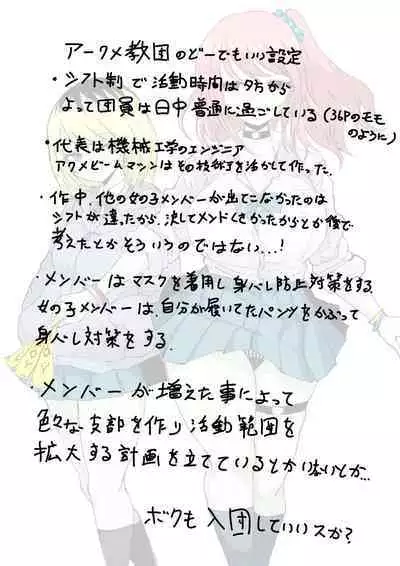 アークメ教団のどーでもいい設定
・シフト制で活動時間は夕方から
よって団員は日中普通に過ごしている(36Pのモモ
のように)
・代表は機械工学のエンジニア
アクメビームマシンはその技術を活かして作った.
・作中、他の女の子メンバーが出てこなかったのは
シフトが違ったから、決してメンドくさかったからとか後で
考えたとかそういうのではない...!
・メンバーはマスクを着用し身バレ防止対策をする.
女の子メンバーは、自分が履いてたパンツをかぶって
身バレ対策をする.
・メンバーが増えた事によって
色々な支部を作り活動範囲を
拡大する計画を立てているとかいないとか...
ボクも入団していいスか?